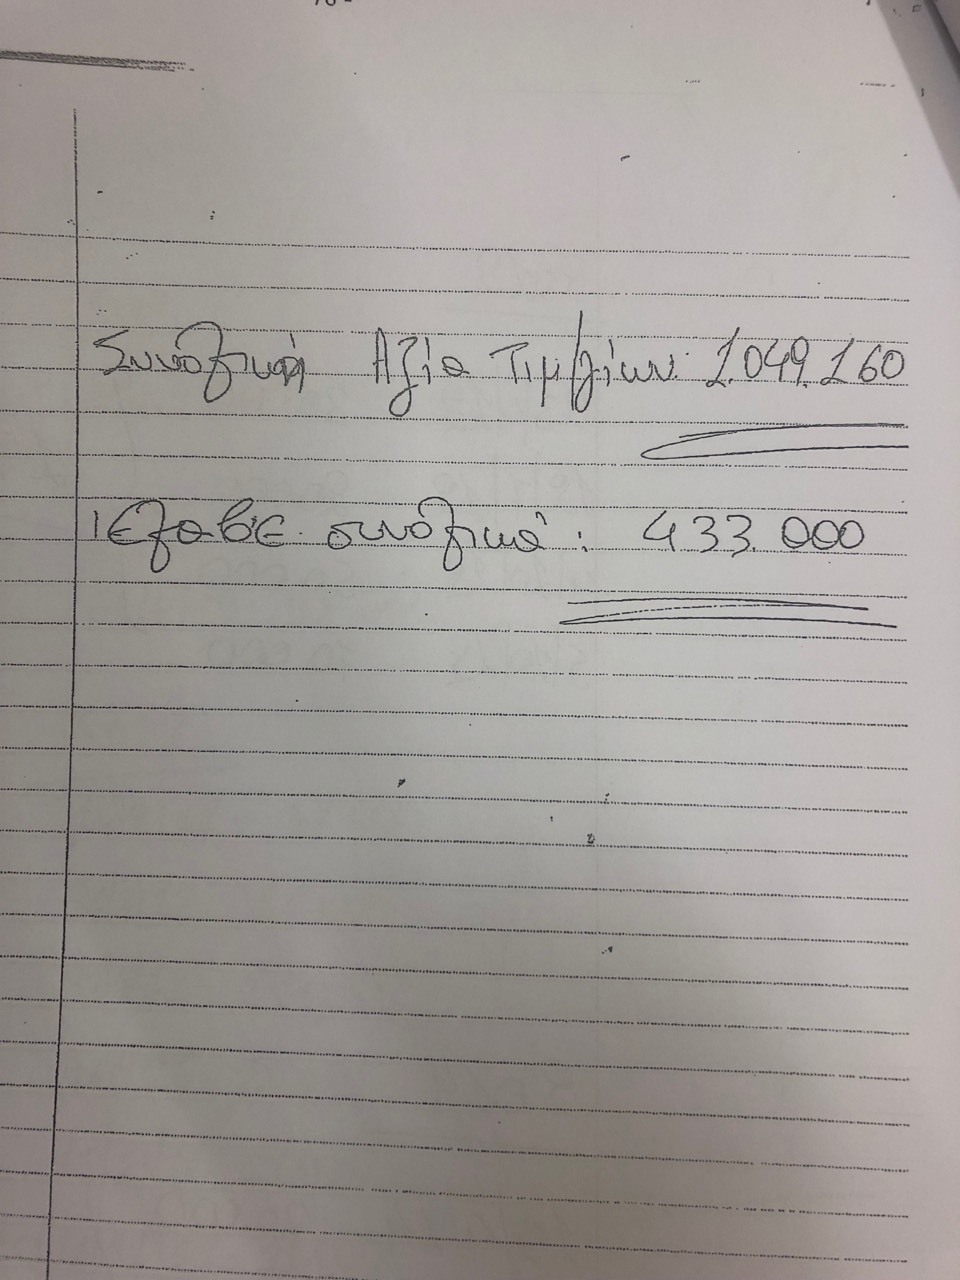 Συνολική Αξία Τιμ/γίων: 1.049.160
Έλαβε συνολικά: 433.000